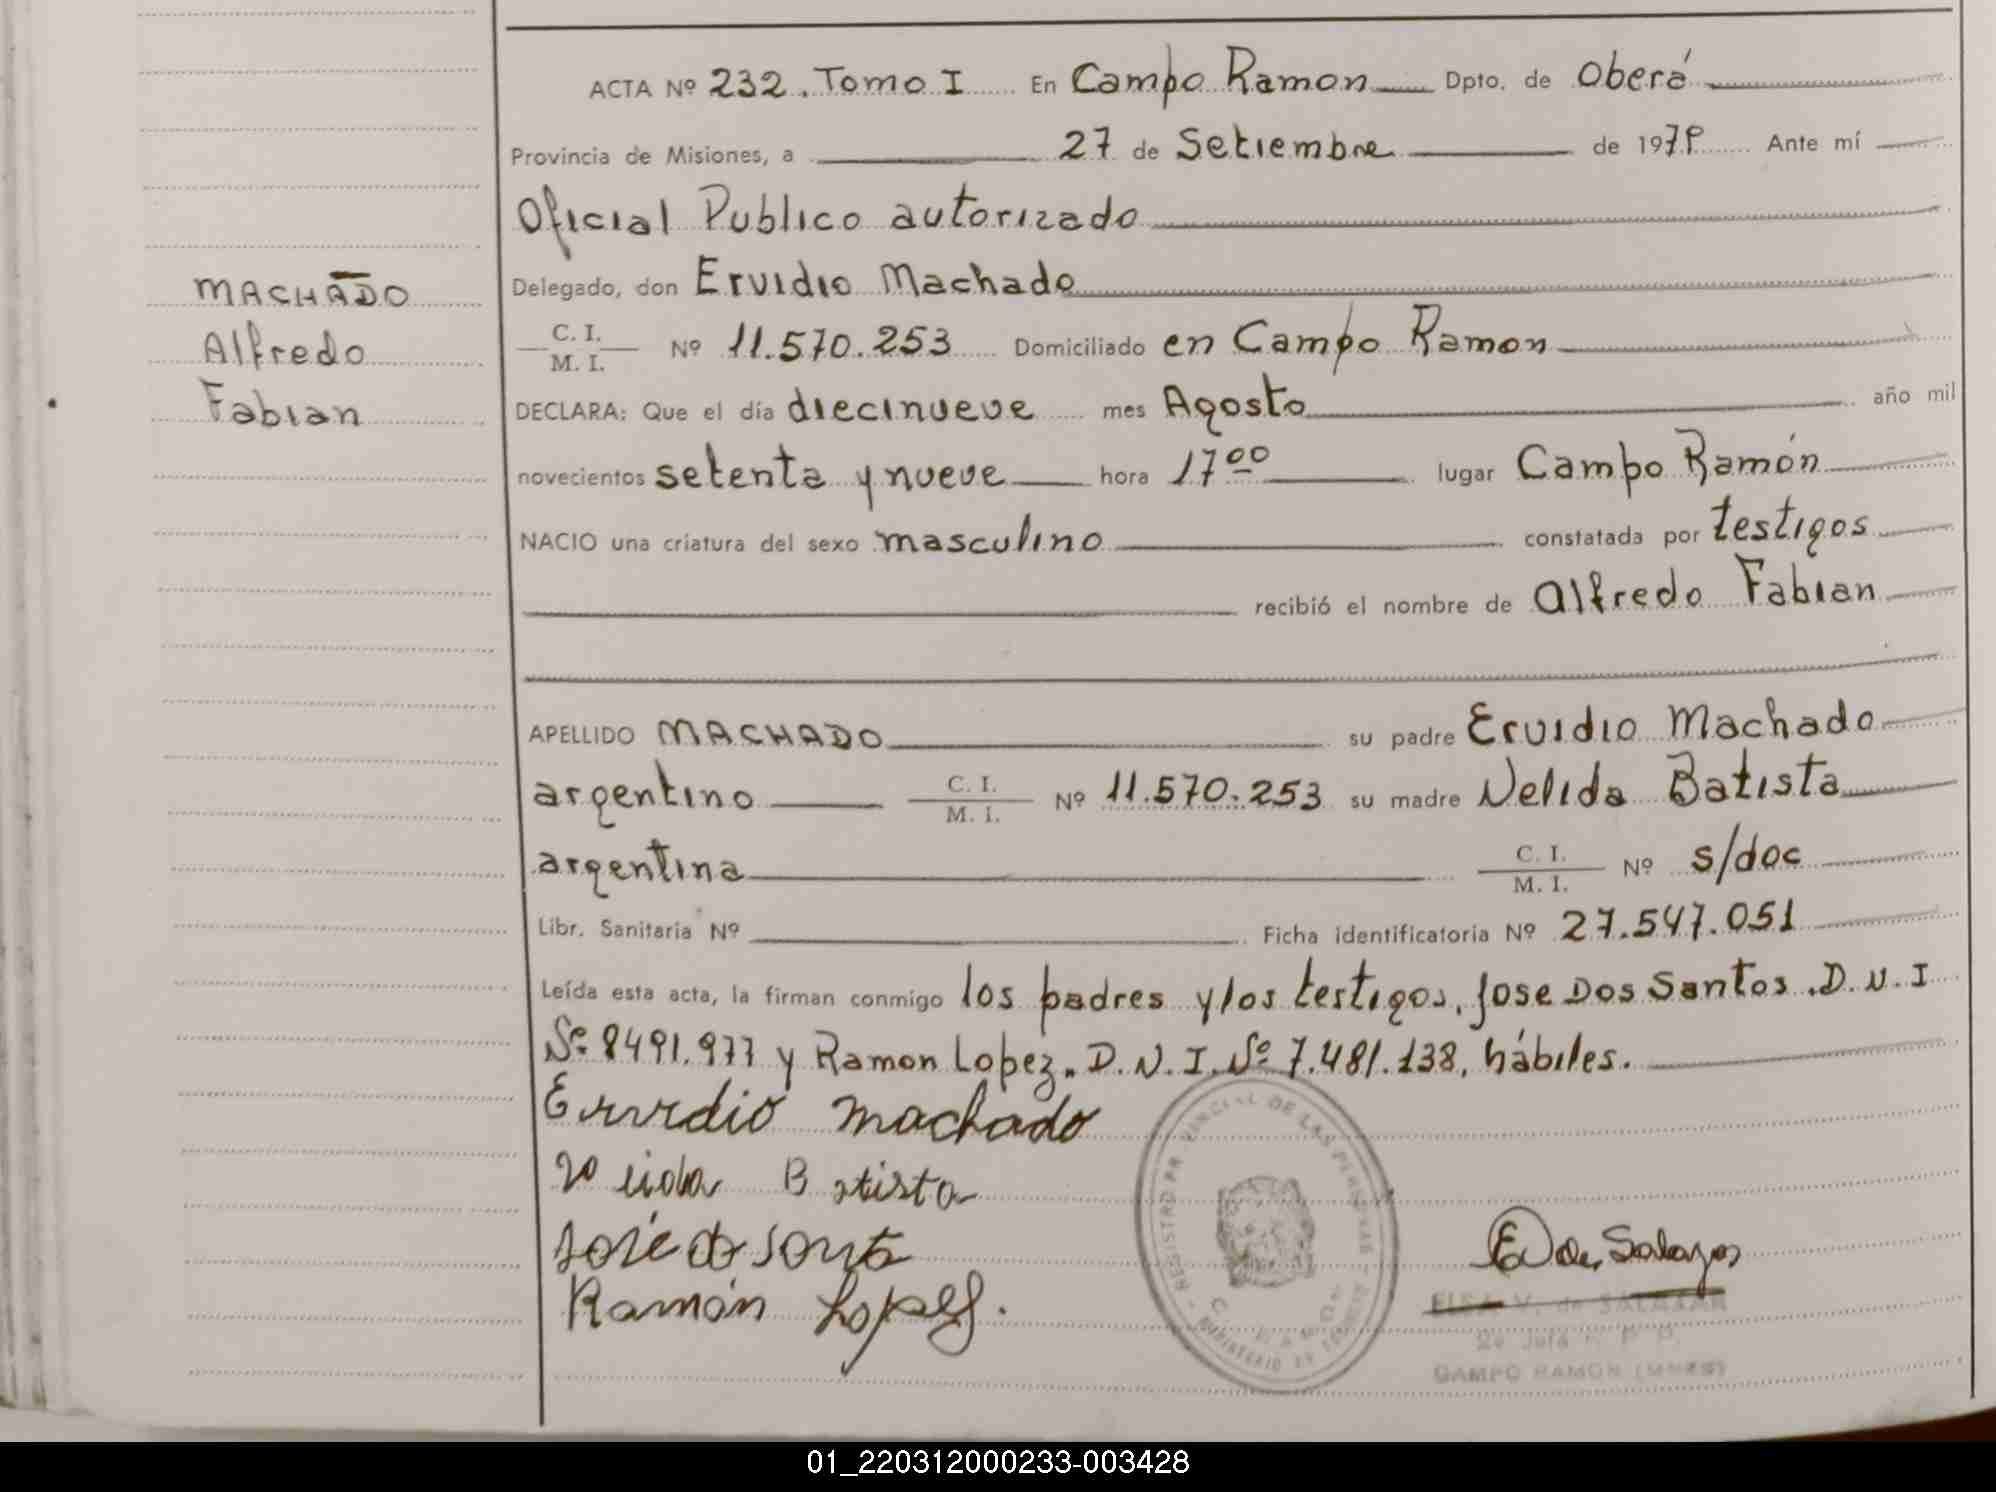 ACTA Nº 232. Tomo I En Campo Ramon Dpto. de Oberá
Provincia de Misiones, a 27 de Setiembre de 1979 Ante mí
Oficial Publico autorizado
MACHADO
Alfredo
Fabian
Delegado, don Ervidio Machado
C. I.
M. I. Nº 11.570.253 Domiciliado en Campo Ramon
DECLARA: Que el día diecinueve mes Agosto año mil
novecientos setenta y nueve hora 17 00 lugar Campo Ramón
NACIO una criatura del sexo masculino constatada por testigos
recibió el nombre de Alfredo Fabian
APELLIDO MACHADO su padre Ervidio Machado
argentino C. I.
M. I. Nº 11.570.253 su madre Nelida Batista
argentina C. I.
M. I. Nº s/doc
Libr. Sanitaria Nº Ficha identificatoria Nº 27.547.051
Leída esta acta, la firman conmigo los padres y los testigos, Jose Dos Santos. D. N. I
Nº 8491.977 y Ramon Lopez. D. N. I. Nº 7.481.138, hábiles.
Ervidio Machado
Batista
José
Ramón Lopez.
REGISTRO PROVINCIAL DE LAS PERSONAS
MINISTERIO DE
E de Salazar
ELSA V. de SALAZAR
CAMPO RAMON (MNES)
01_220312000233-003428